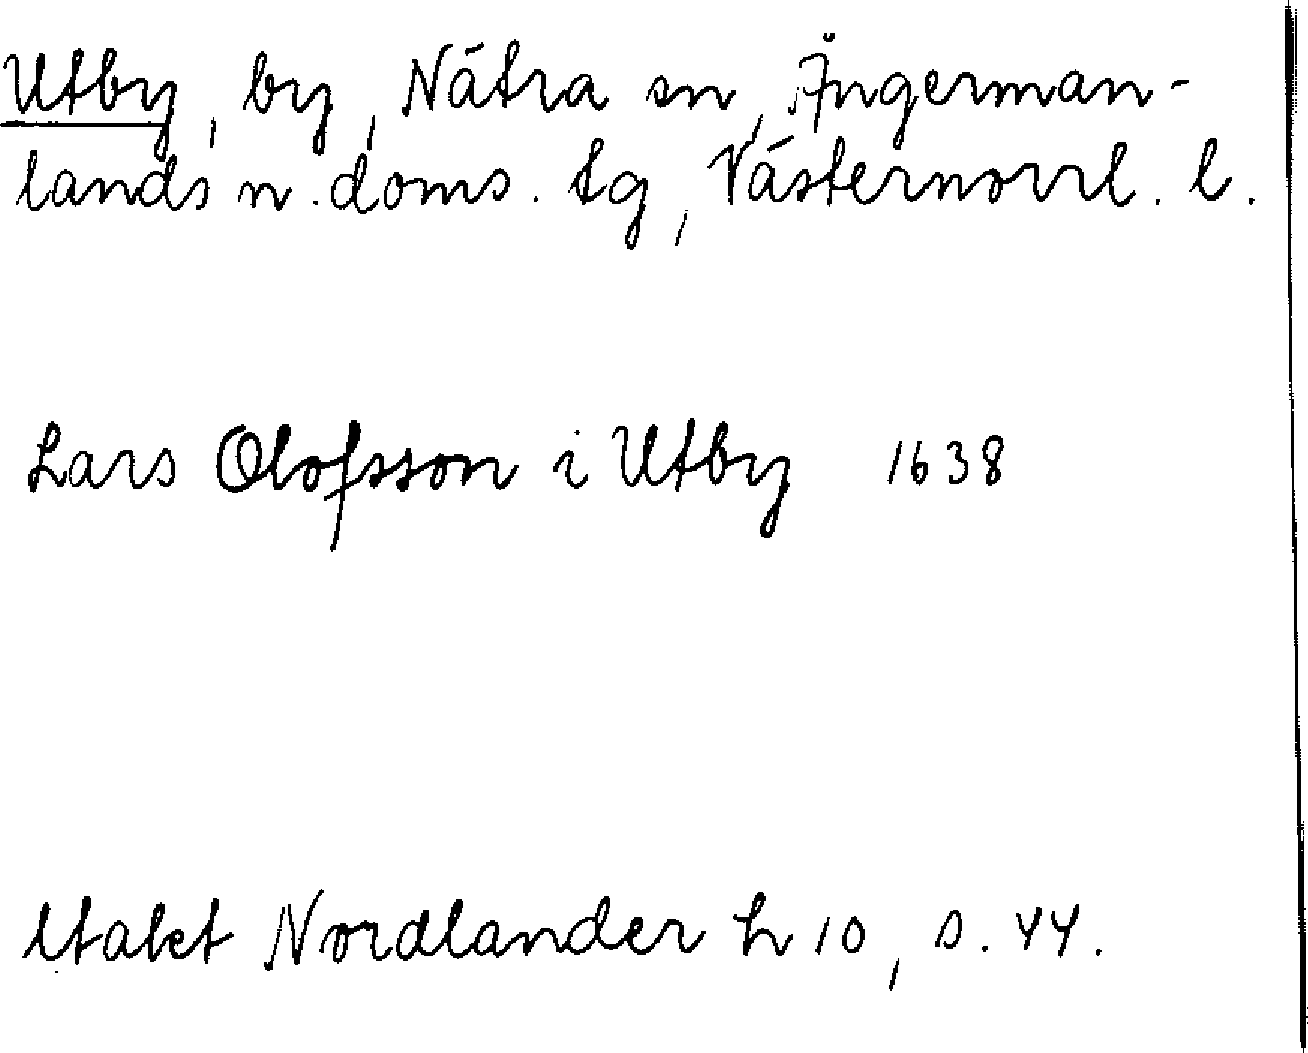 Utby, by, Nätra sn, Ångerman-
lands n. doms. tg, Västernorrl. l.
Lars Olofsson i Utby 1638
Nordlander h 10, s. 44.